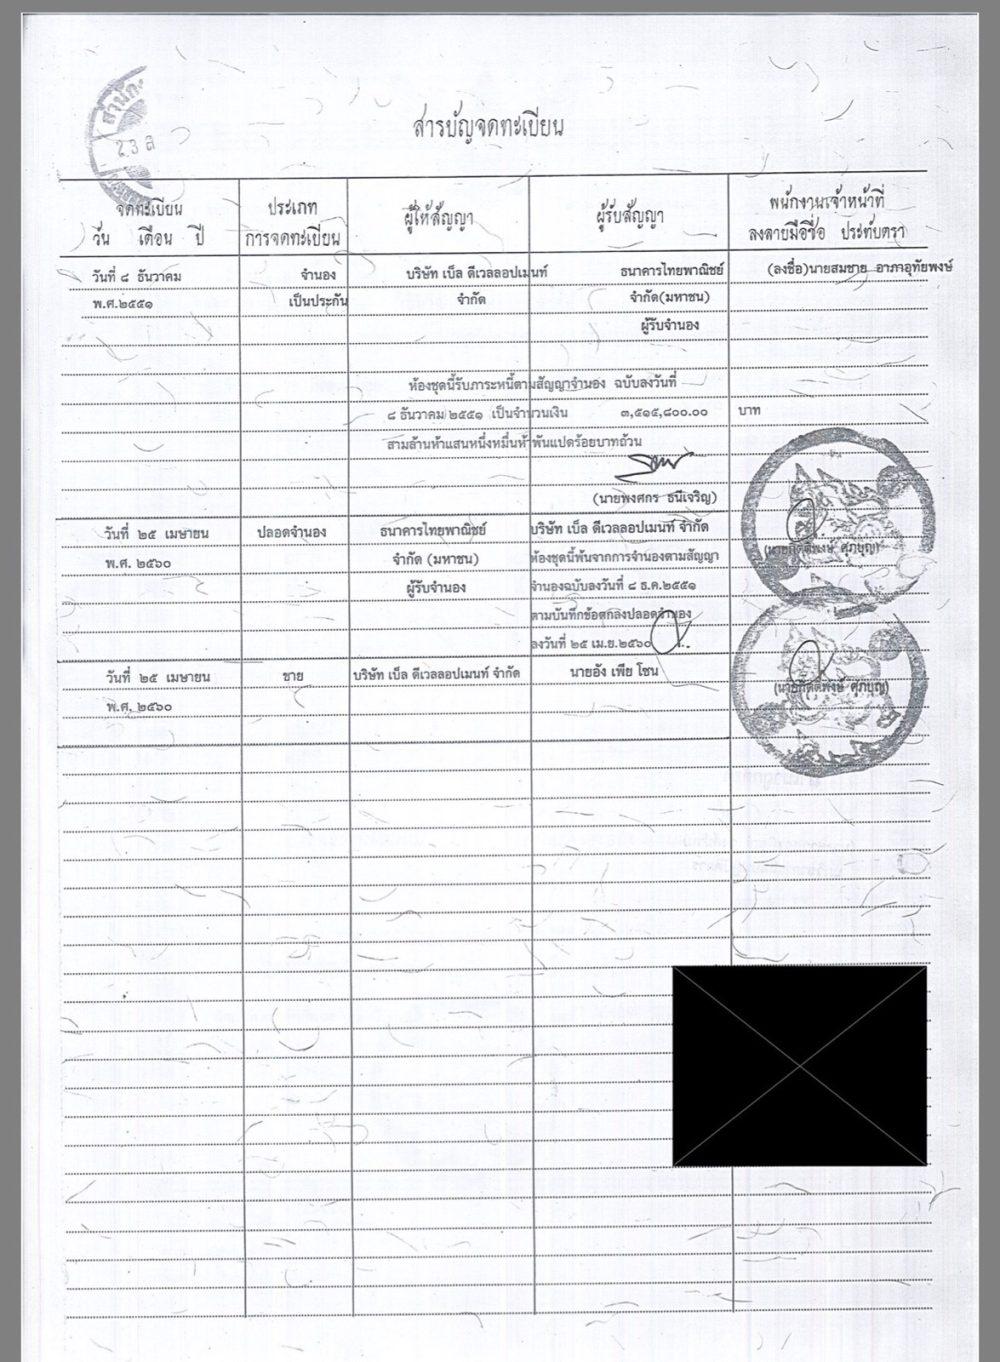 สำนัก
23 ส
สารบัญจดทะเบียน
จดทะเบียน
วัน เดือน ปี
ประเภท
การจดทะเบียน
ผู้ให้สัญญา
ผู้รับสัญญา
พนักงานเจ้าหน้าที่
ลงลายมือชื่อ ประทับตรา
วันที่ ๘ ธันวาคม จำนอง บริษัท เบ็ล ดีเวลลอปเมนท์ ธนาคารไทยพาณิชย์ (ลงชื่อ)นายสมชาย อาภาอุทัยพงษ์
พ.ศ.๒๕๕๑ เป็นประกัน จำกัด จำกัด(มหาชน)
ผู้รับจำนอง
ห้องชุดนี้รับภาระหนี้ตามสัญญาจำนอง ฉบับลงวันที่
๘ ธันวาคม ๒๕๕๑ เป็นจำนวนเงิน ๓,๕๑๕,๘๐๐.๐๐ บาท
สามล้านห้าแสนหนึ่งหมื่นห้าพันแปดร้อยบาทถ้วน
(นายพงศกร ธนีเจริญ)
วันที่ ๒๕ เมษายน ปลอดจำนอง ธนาคารไทยพาณิชย์ บริษัท เบ็ล ดีเวลลอปเมนท์ จำกัด
พ.ศ. ๒๕๖๐ จำกัด (มหาชน) ห้องชุดนี้พ้นจากการจำนองตามสัญญา (นายภัคดีพงษ์ ศุภบุญ)
ผู้รับจำนอง จำนองฉบับลงวันที่ ๘ ธ.ค.๒๕๕๑
ตามบันทึกข้อตกลงปลอดจำนอง
ลงวันที่ ๒๕ เม.ย.๒๕๖๐
วันที่ ๒๕ เมษายน ขาย บริษัท เบ็ล ดีเวลลอปเมนท์ จำกัด นายอัง เพีย โซน (นายภัคดีพงษ์ ศุภบุญ)
พ.ศ. ๒๕๖๐